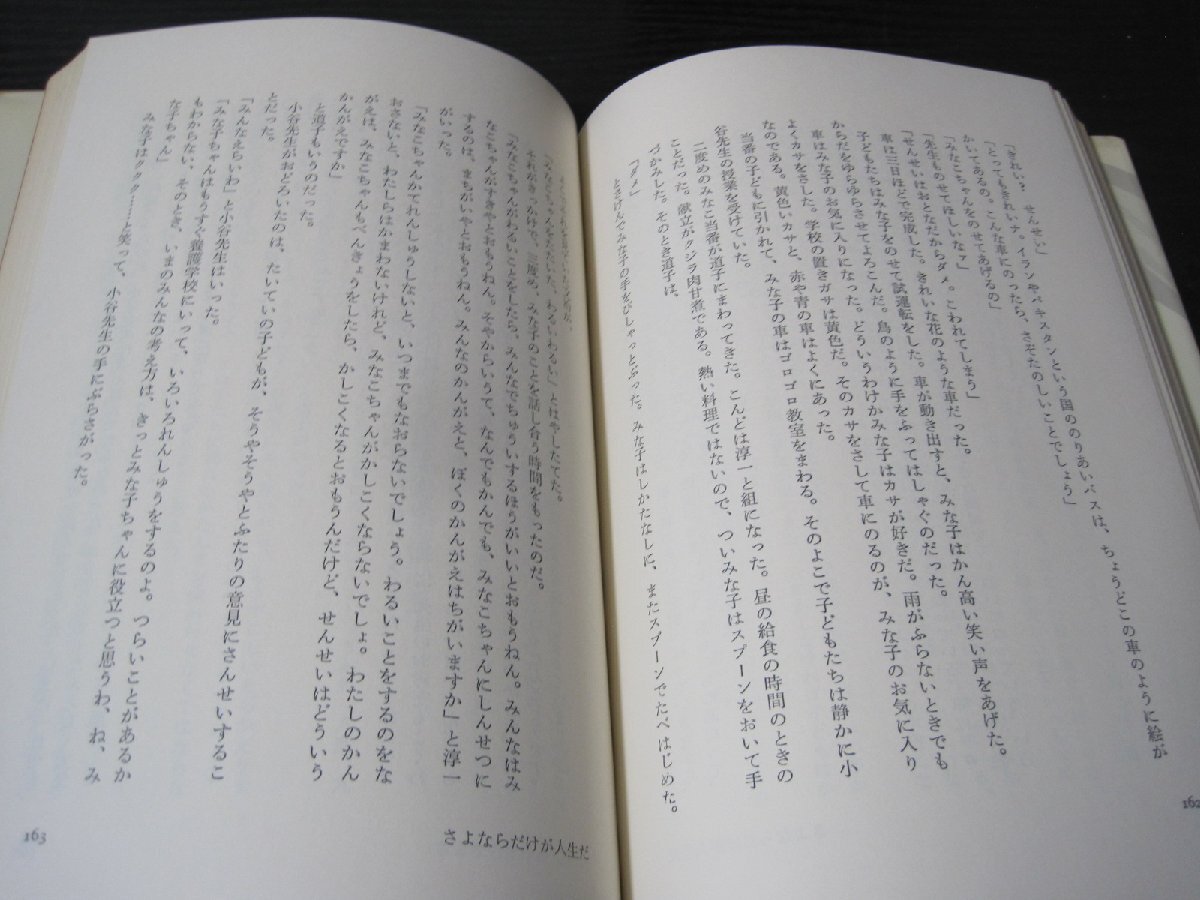 「きれい? せんせい」
「とってもきれいナ。イランやパキスタンという国ののりあいバスは、ちょうどこの車のように絵が
かいてあるの。こんな車にのったら、さぞたのしいことでしょう」
「みなこちゃんをのせてあげるの」
「先生ものせてほしいなァ」
「せんせいはおとなだからダメ。こわれてしまう」
車は三日ほどで完成した。きれいな花のような車だった。
子どもたちはみな子をのせて試運転をした。車が動き出すと、みな子はかん高い笑い声をあげた。
からだをゆらゆらさせてよろこんだ。鳥のように手をふってはしゃぐのだった。
車はみな子のお気に入りになった。どういうわけかみな子はカサが好きだ。雨がふらないときでも
よくカサをさした。学校の置きガサは黄色だ。そのカサをさして車にのるのが、みな子のお気に入り
なのである。黄色いカサと、赤や青の車はよくにあった。
当番の子どもに引かれて、みな子の車はゴロゴロ教室をまわる。そのよこで子どもたちは静かに小
谷先生の授業を受けていた。
二度めのみなこ当番が道子にまわってきた。こんどは淳一と組になった。昼の給食の時間のときの
ことだった。献立がクジラ肉甘煮である。熱い料理ではないので、ついみな子はスプーンをおいて手
づかみした。そのとき道子は、
「ダメ」
とさけんでみな子の手をぴしゃっとぶった。みな子はしかたなしに、またスプーンでたべはじめた。
162
「みなこちゃんをたたいた、わるいわるい」とはやしたてた。
それがきっかけで、三度め、みな子のことを話し合う時間をもったのだ。
「みなこちゃんがわるいことをしたら、みんなでちゅういするほうがいいとおもうねん。みんなはみ
なこちゃんがすきやとおもうねん。そやからいうて、なんでもかんでも、みなこちゃんにしんせつに
するのは、まちがいやとおもうねん。みんなのかんがえと、ぼくのかんがえはちがいますか」と淳一
がいった。
「みなこちゃんかてれんしゅうしないと、いつまでもなおらないでしょう。わるいことをするのをな
おさないと、わたしらはかまわないけれど、みなこちゃんがかしこくならないでしょ。わたしのかん
がえは、みなこちゃんもべんきょうをしたら、かしこくなるとおもうんだけど、せんせいはどういう
かんがえですか」
と道子もいうのだった。
小谷先生がおどろいたのは、たいていの子どもが、そうやそうやとふたりの意見にさんせいするこ
とだった。
「みんなえらいわ」と小谷先生はいった。
「みな子ちゃんはもうすぐ養護学校にいって、いろいろれんしゅうをするのよ。つらいことがあるか
もわからない、そのとき、いまのみんなの考え方は、きっとみな子ちゃんに役立つと思うわ、ね、み
な子ちゃん」
みな子はククク……と笑って、小谷先生の手にぶらさがった。
163
さよならだけが人生だ